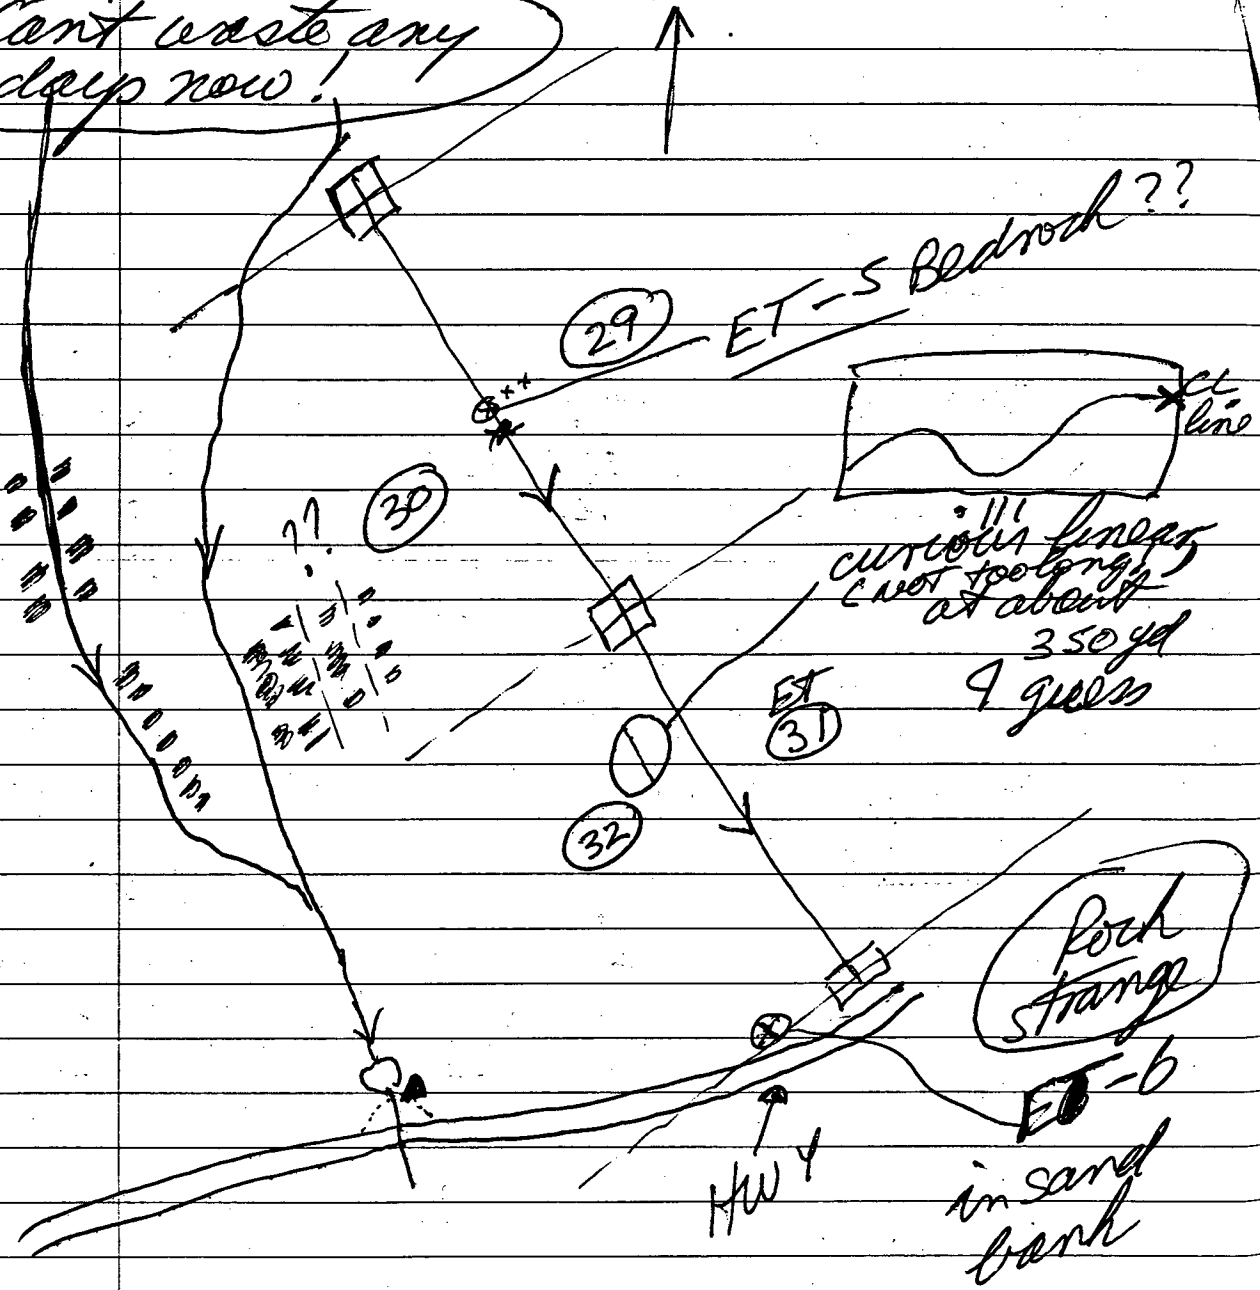 Can't waste any
days now!
ET-5 Bedrock??
29
CL
line
30
??
!!!
curious linear,
(not too long,
at about
350 yd
I guess
ET
31
32
Rock
strange
ET-6
in sand
bank
HWY